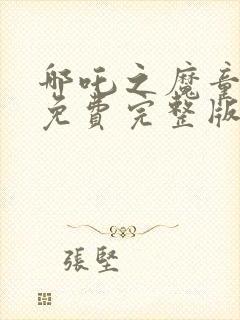 哪吒之魔童
免費完整版
張堅